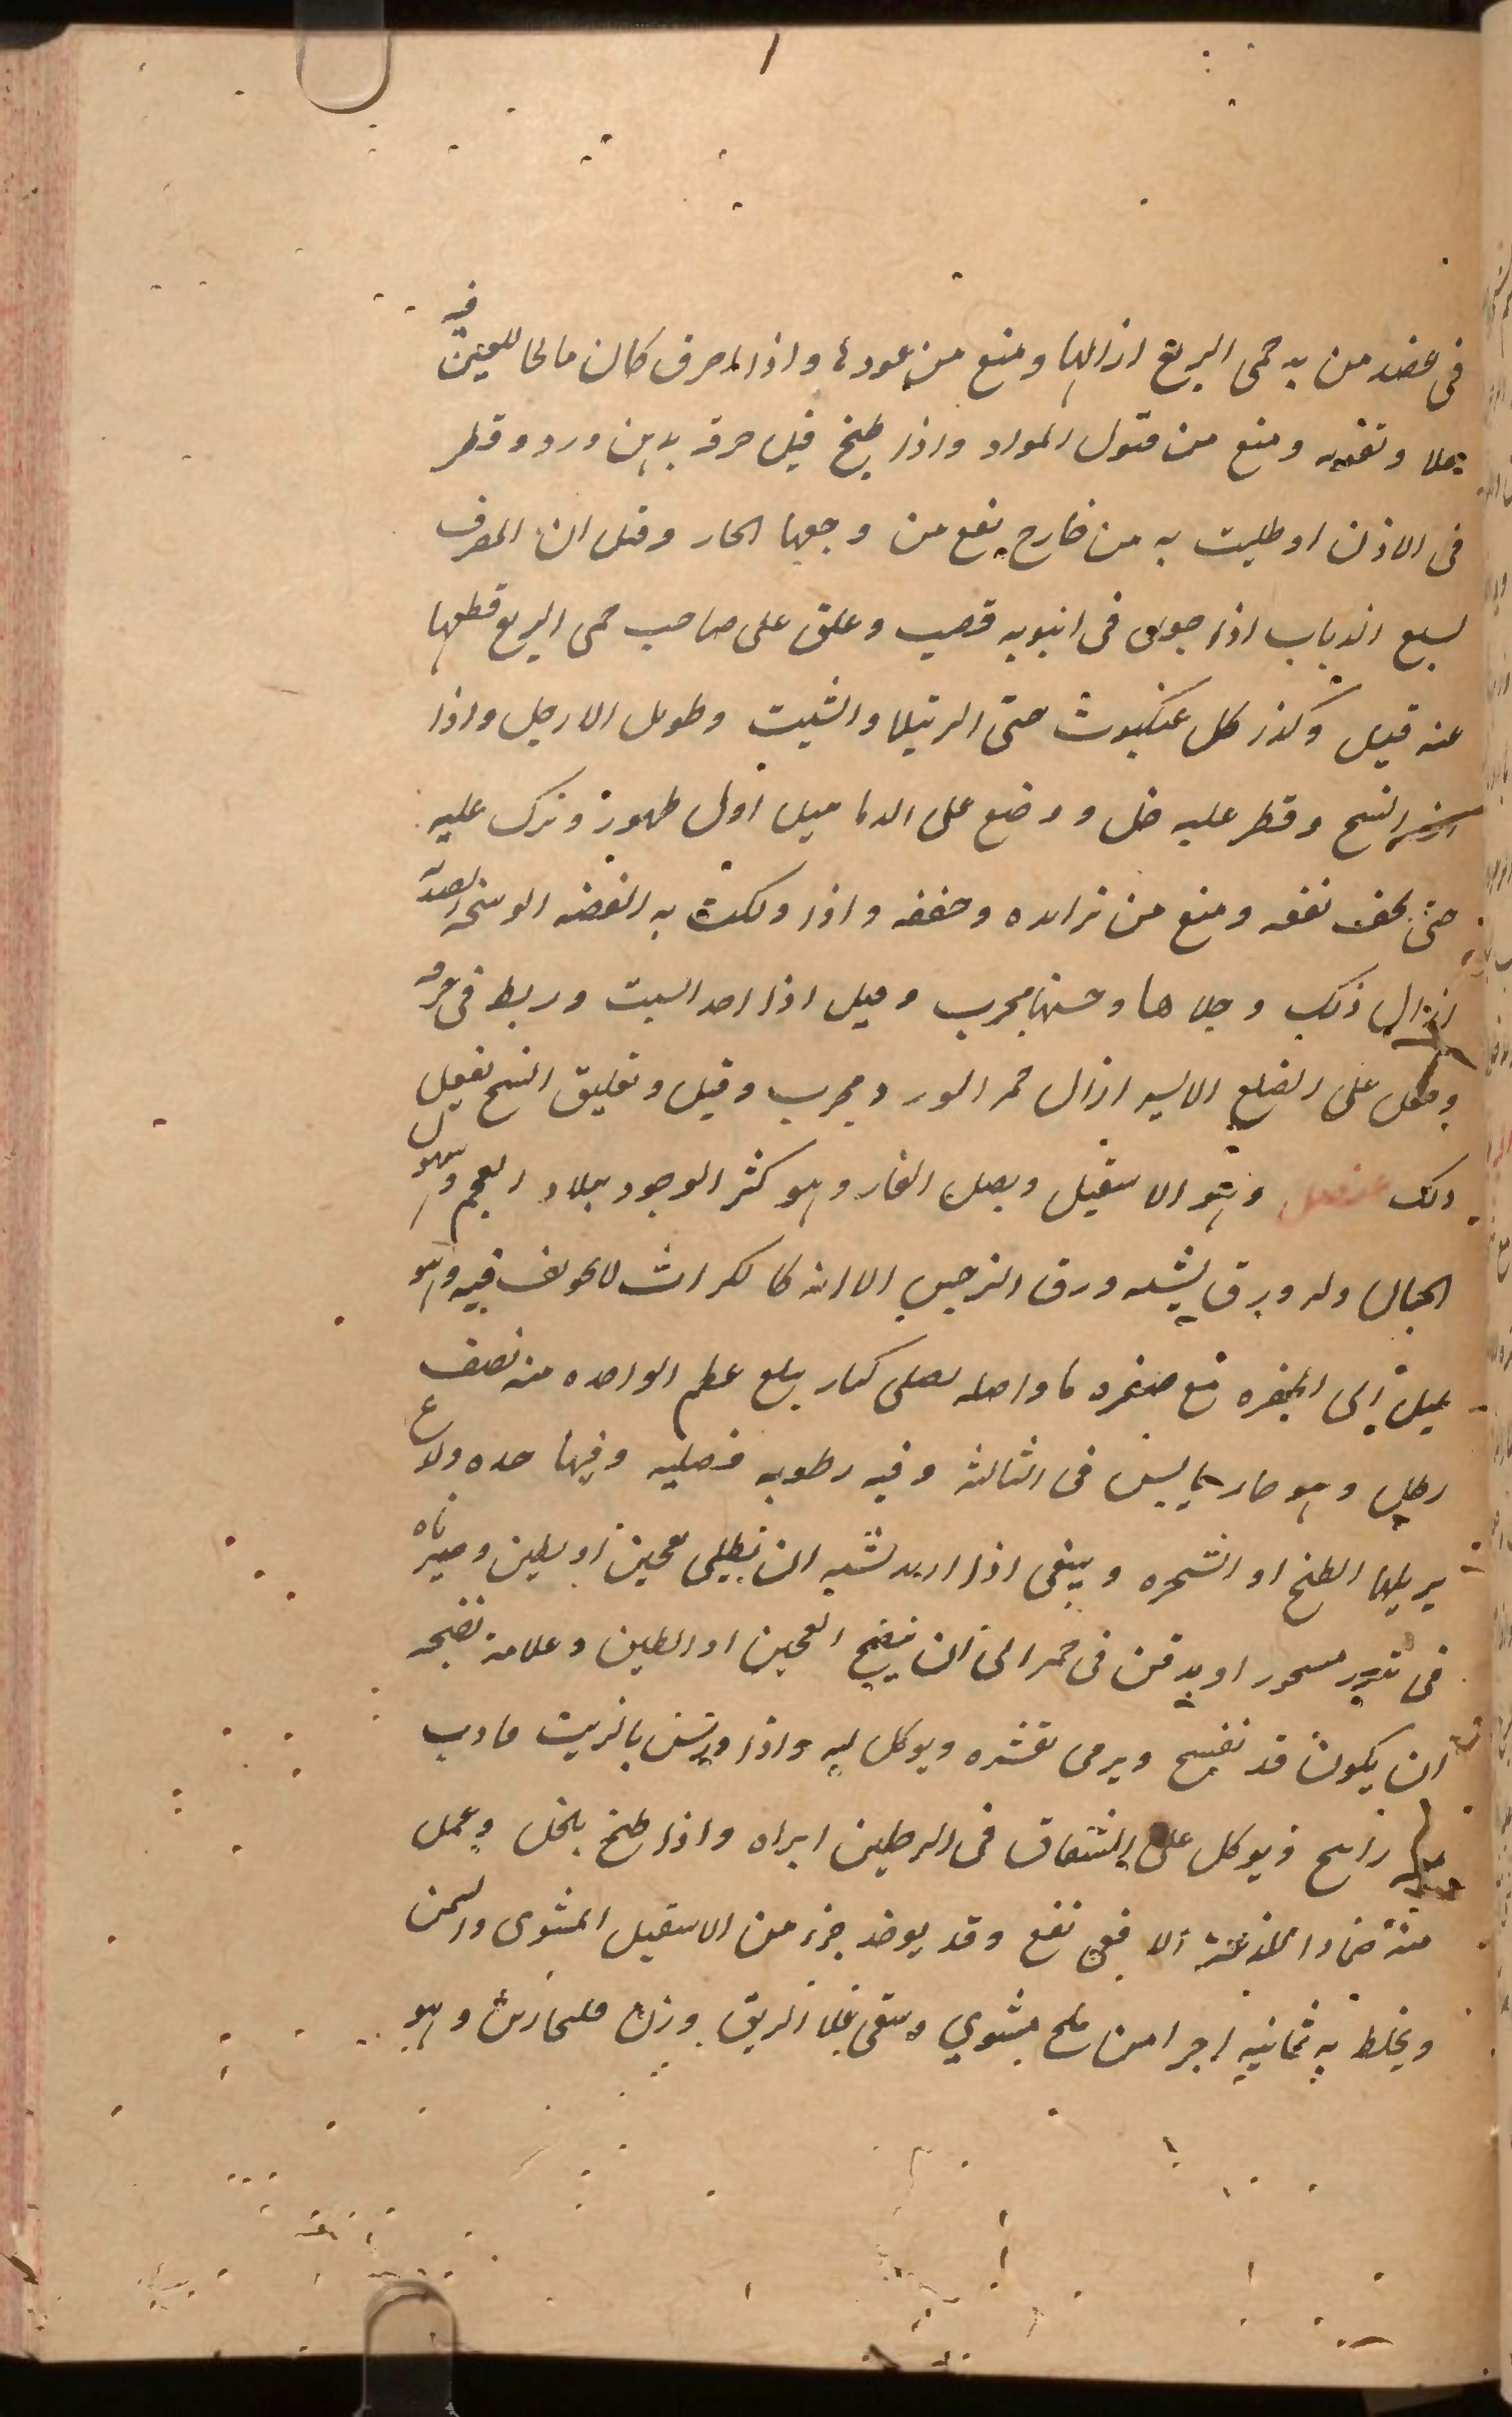 فى عضد من به حمى الربع ازالها ومنع من عودها واذا احرق كان مالحا للعين فيه
جلا وتقويه ومنع من قبول المواد واذا طبخ قبل حرقه بدهن ورد وقطر
فى الاذن او طليت به من خارج نفع من وجعها الحار وقيل ان المعرف
بسبع الذباب اذا جعل فى انبوبه قصب وعلق على صاحب حمى الربع قطعها
عنه قيل وكذا كل عنكبوت حتى الرتيلا والشبت وطويل الارجل واذا
النسج وقطر عليه خل ووضع على الدماميل اول ظهورها وترك عليه
حتى يجف نفعه ومنع من تزايده وجففه واذا دلكت به الفضه الوسخه الصديه
ازال ذلك وجلاها وحسنها مجرب وقيل اذا اخذ البيت وربط فى خرقه
وجعل على الضلع الايسر ازال حمى الورد مجرب وقيل وتعليق النسج يفعل
ذلك عنصل وهو الاسقيل وبصل الفار وهو كثر الوجود ببلاد العجم وهو
الجبال وله ورق يشبه ورق النرجس الا انه كالكراث لا تجويف فيه وهو
يميل الى الخضره مع صفره ما واصله بصلى كبار يبلغ عظم الواحده منه نصف
رطل وهو حار يابس فى الثالثه وفيه رطوبه فضليه وفيها حده ولذع
يزيلها الطبخ او الشى وينبغى اذا اريد شيه ان يطلى بعجين او بطين
فى تنور مسجور او يدفن فى جمر الى ان ينضج العجين او الطين وعلامة نضجه
ان يكون قد نفسخ ويرمى بقشره ويوكل لبه واذا بالزيت
ويوكل على الشقاق فى الرجلين ابراه واذا طبخ بخل وعمل
منه ضماد الافعى نفع وقد يوخذ جزء من الاسقيل المشوى
ويخلط به ثمانيه اجزا من ملح مشوي ويسقى على الريق وزن وهو